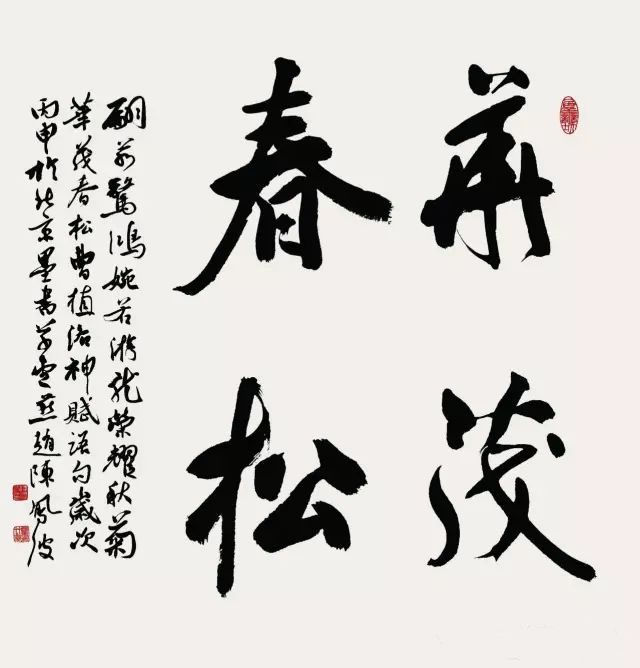 華茂
春松
翩若驚鴻婉若游龍榮耀秋菊
華茂春松曹植洛神賦語句歲次
丙申於北京墨燕趙陳鳳波